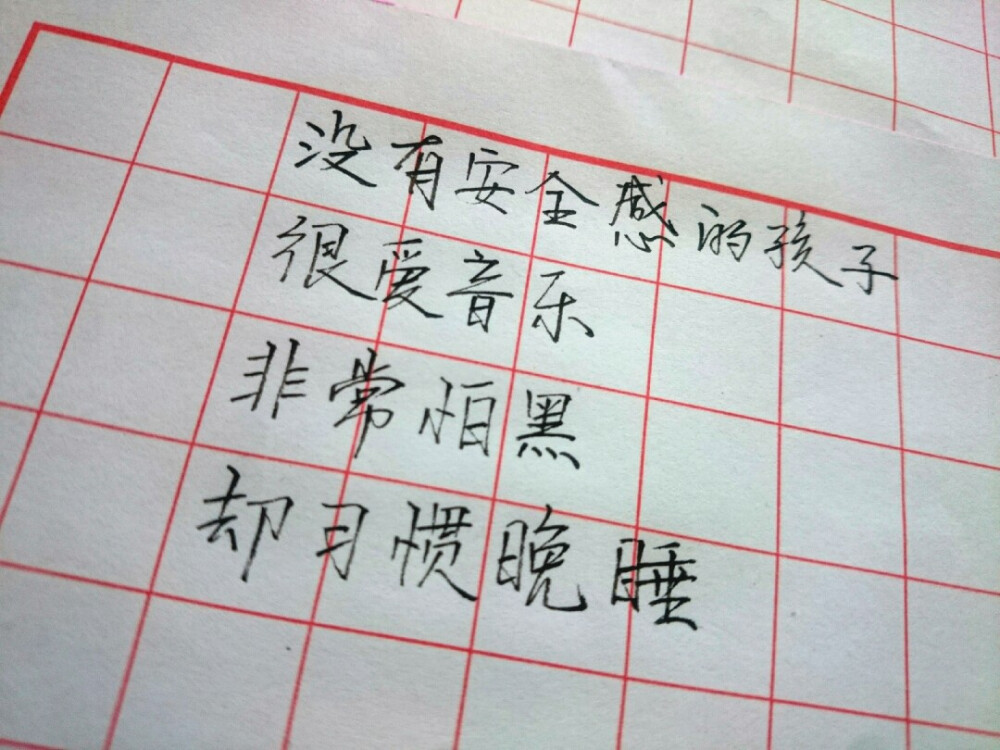 没有安全感的孩子
很爱音乐
非常怕黑
却习惯晚睡